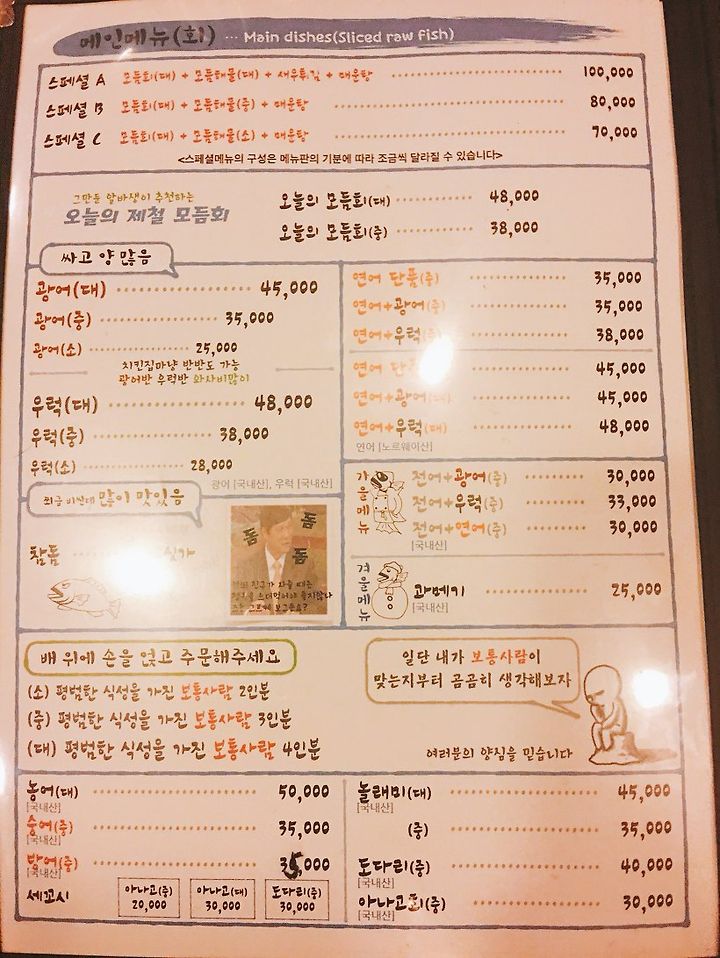 메인메뉴(회) ··· Main dishes(Sliced raw fish)
스페셜 A 모듬회(대) + 모듬해물(대) + 새우튀김 + 매운탕 100,000
스페셜 B 모듬회(대) + 모듬해물(중) + 매운탕 80,000
스페셜 C 모듬회(대) + 모듬해물(소) + 매운탕 70,000
<스페셜메뉴의 구성은 메뉴판의 기분에 따라 조금씩 달라질 수 있습니다>
그만둔 알바생이 추천하는
오늘의 제철 모듬회
오늘의 모듬회(대) 48,000
오늘의 모듬회(중) 38,000
싸고 양 많음
광어(대) 45,000
광어(중) 35,000
광어(소) 25,000
치킨집마냥 반반도 가능
광어반 우럭반 와사비많이
우럭(대) 48,000
우럭(중) 38,000
우럭(소) 28,000
광어 [국내산], 우럭 [국내산]
연어 단품(중) 35,000
연어+광어(중) 35,000
연어+우럭(중) 38,000
연어 45,000
연어+광어(대) 45,000
연어+우럭(대) 48,000
연어 [노르웨이산]
많이 맛있음
참돔 싯가
돔
돔
돔
가을메뉴
전어+광어(중) 30,000
전어+우럭(중) 33,000
전어+연어(중) 30,000
[국내산]
겨울메뉴
과메기 25,000
[국내산]
배 위에 손을 얹고 주문해주세요
(소) 평범한 식성을 가진 보통사람 2인분
(중) 평범한 식성을 가진 보통사람 3인분
(대) 평범한 식성을 가진 보통사람 4인분
일단 내가 보통사람이
맞는지부터 곰곰히 생각해보자
여러분의 양심을 믿습니다
농어(대) 50,000
[국내산]
숭어(중) 35,000
[국내산]
방어(중) 35,000
[국내산]
세꼬시
아나고(중) 20,000
아나고(대) 30,000
도다리(중) 30,000
놀래미(대) 45,000
[국내산]
(중) 35,000
도다리(중) 40,000
[국내산]
아나고회(중) 30,000
[국내산]